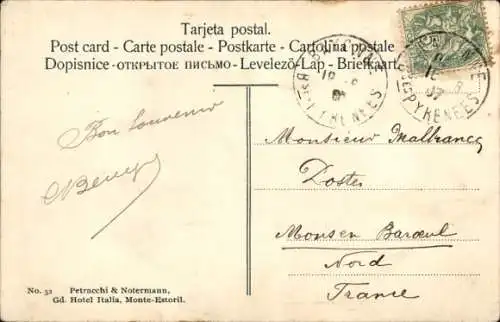 Tarjeta postal.
Post card - Carte postale - Postkarte - Cartolina postale
Dopisnice - ОТКРЫТОЕ ПИСЬМО - Levelezö-Lap - Briefkaart
BAYONNE
PYRENEES
PYRENEES
Bon Souvenir
Monsieur Malfrancq
Postes
Monsen Baroeul
Nord
France
No. 32 Petracchi & Notermann,
Gd. Hotel Italia, Monte-Estoril.